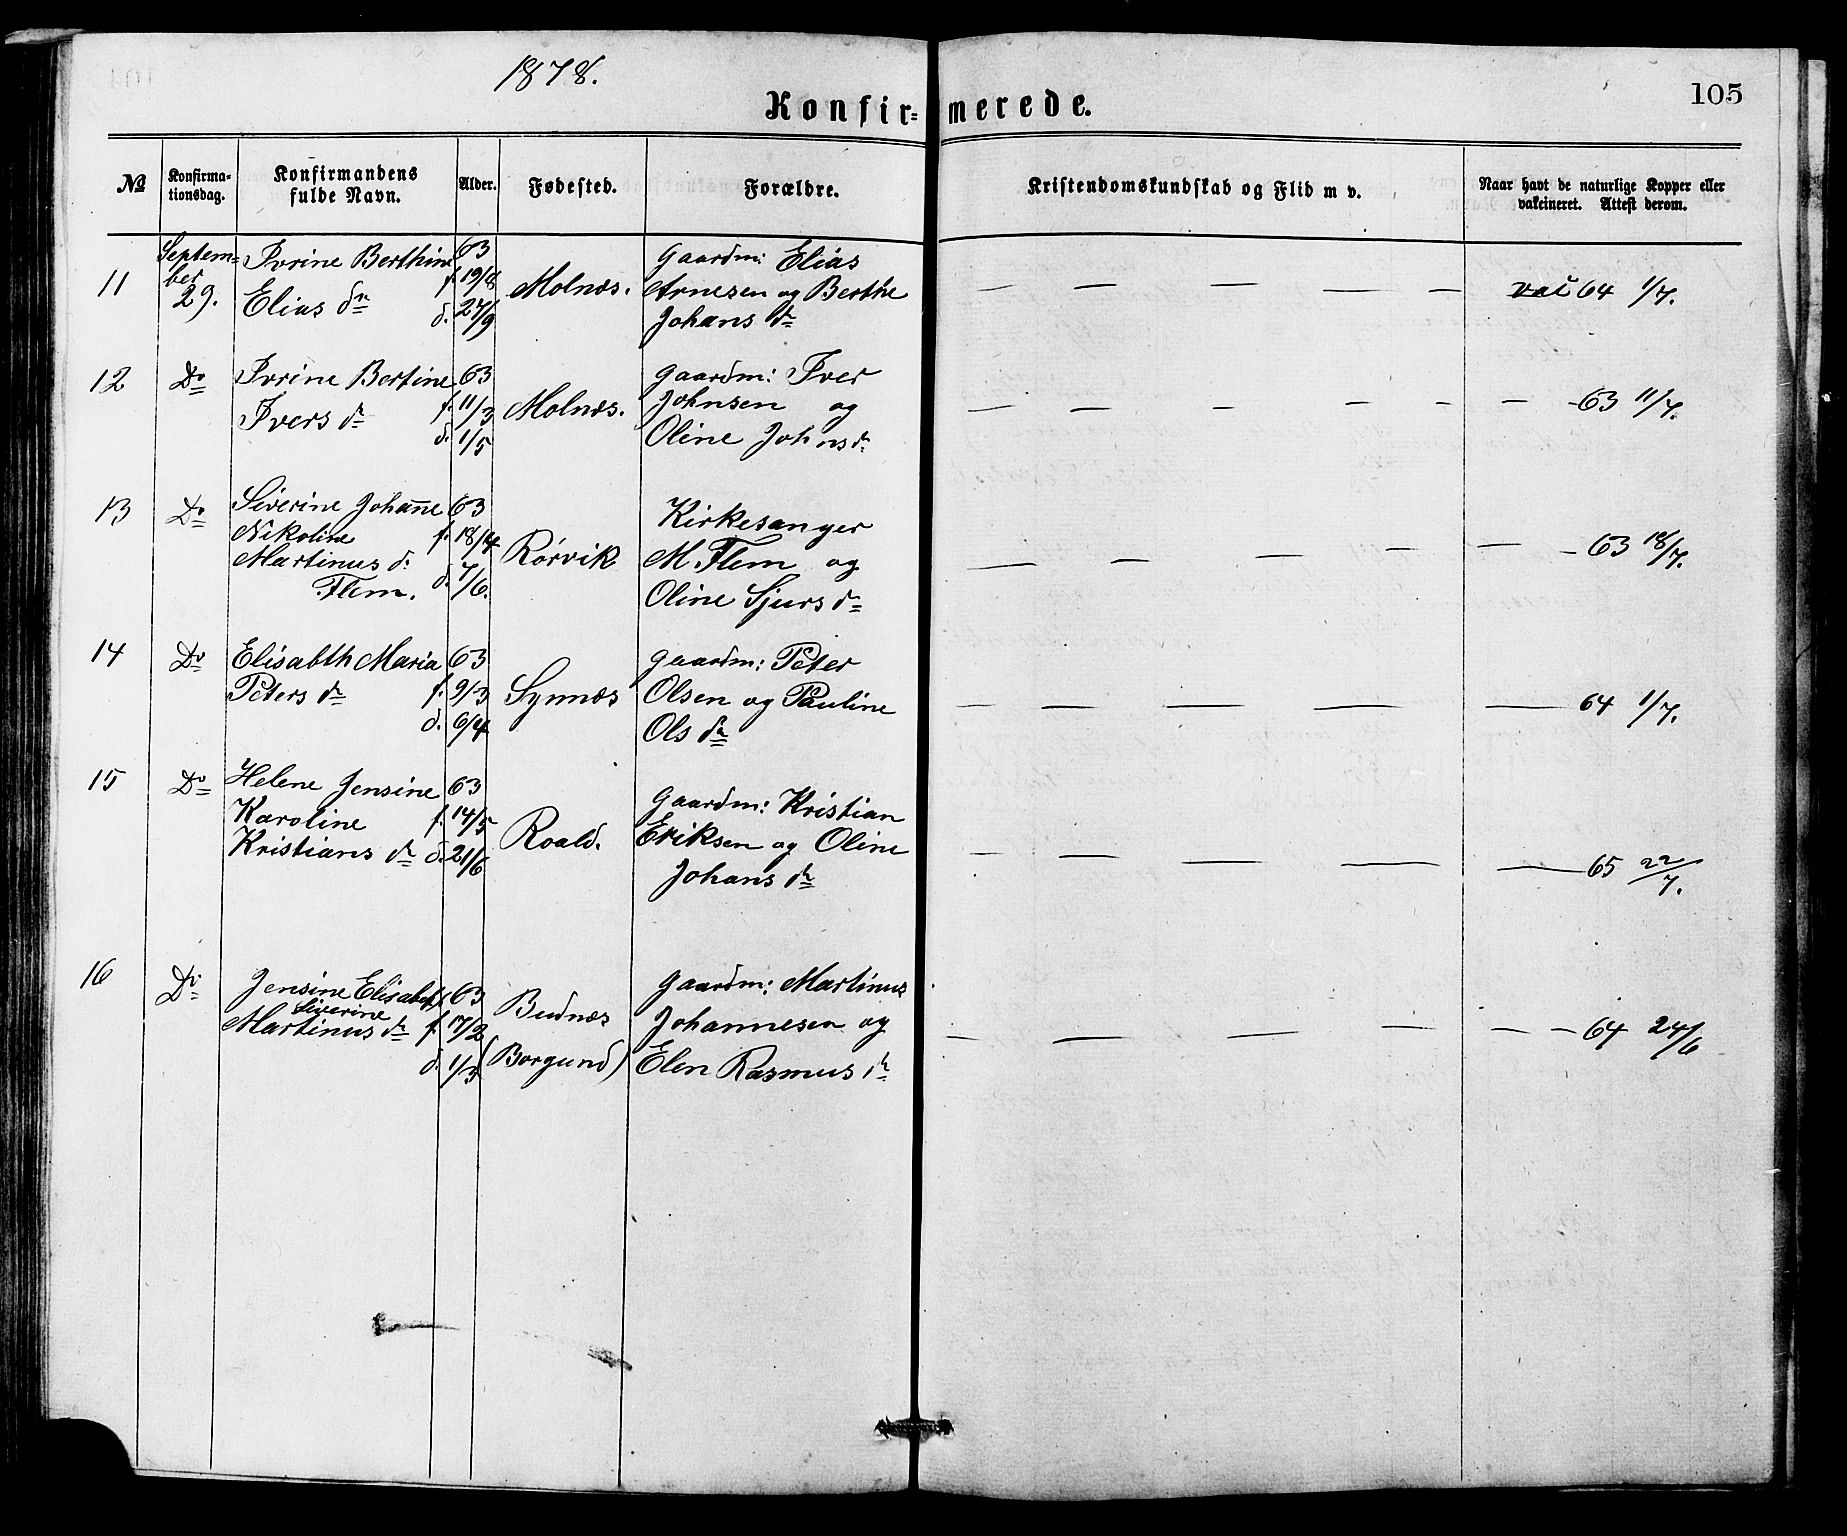 1878.
105
Konfir= merede.
№ Konfirma-tionsdag. Konfirmandens fulde Navn. Alder. Fødested. Forældre. Kristendomskundskab og Flid m v. Naar havt de naturlige Kopper eller vakcineret. Attest derom.
11 Septem= Ivrine Berthine 63 Gaardm: Elias
ber f. 19/8
29. Elias dr Molnæs. Arnesen og Berthe — — — — — vac 64 1/7.
d. 27/9 Johans dr
12 Do Ivrine Bertine 63 Gaardm: Iver
Ivers dr f. 11/3 Molnæs. Johnsen og — — — — — — -63 11/7.
d. 1/5 Oline Johnsdr
13 Do Siverine Johanne 63 Kirkesanger
Nikoline f. 18/4
Martinus d: Rörvik M. Flem og — — — — — — 63 18/7.
Flem. d. 7/6. Oline Sjurs dr
14 Do Elisabth Maria 63 Gaardm: Peter
Peters dr f. 9/3 Synnæs Olsen og Pauline — — — — — 64 1/7.
d. 6/4 Ols dr
15 Do Helene Jensine 63 Gaardm: Kristian
Karoline f. 14/5 Roald. Eriksen og Oline
Kristians dr d. 21/6 Johans dr — — — — — 65 22/7.
16 Do Jensine Elisabeth 63 Budnæs Gaardm: Martinus
Siverine
Martinus dr f. 17/2 Johannesen og — — — — — — 64 24/6
d. 1/3 (Borgund) Elen Rasmus dr